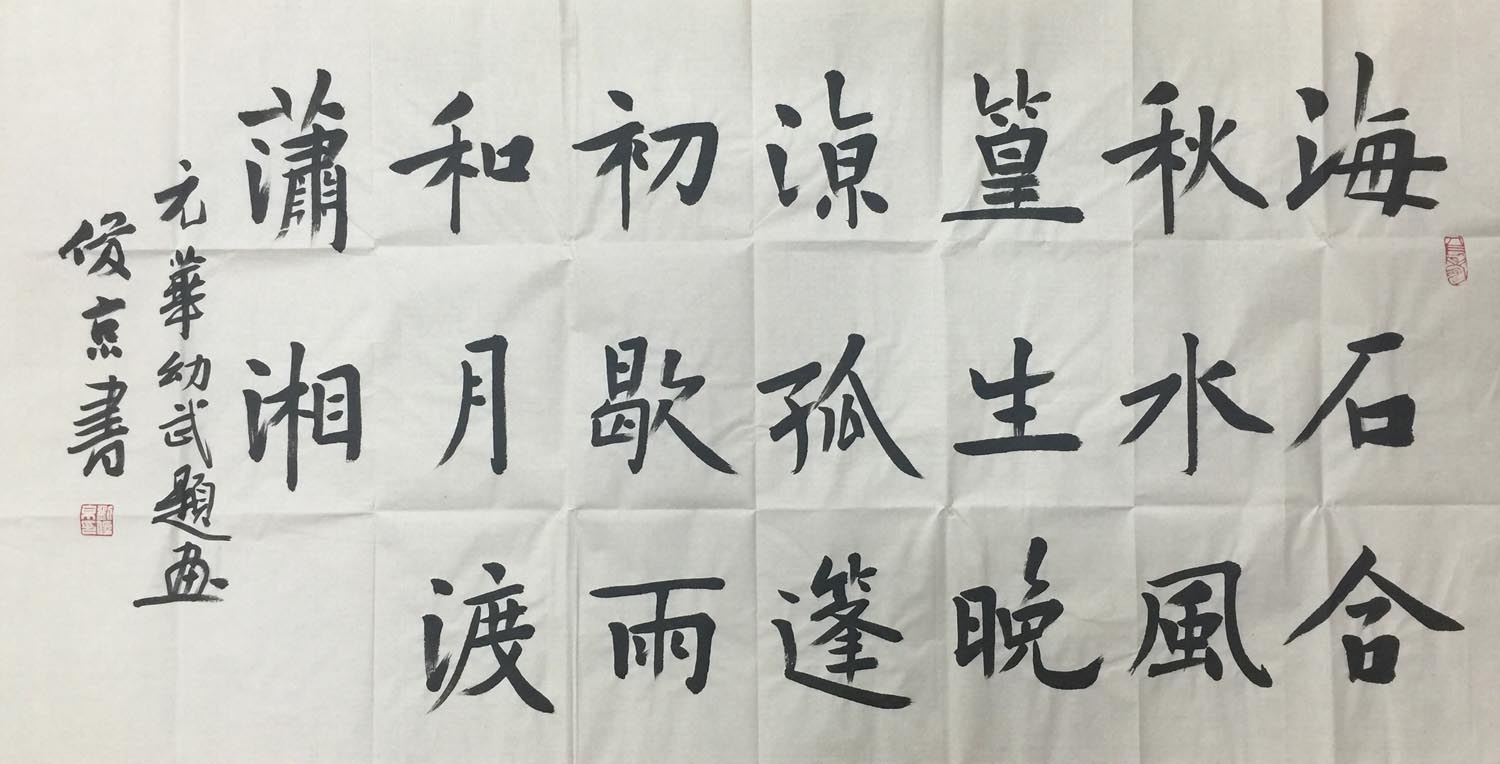 海石合
秋水風
篁生晚
涼孤篷
初歇雨
和月渡
瀟湘
元華幼武題画
俊京書